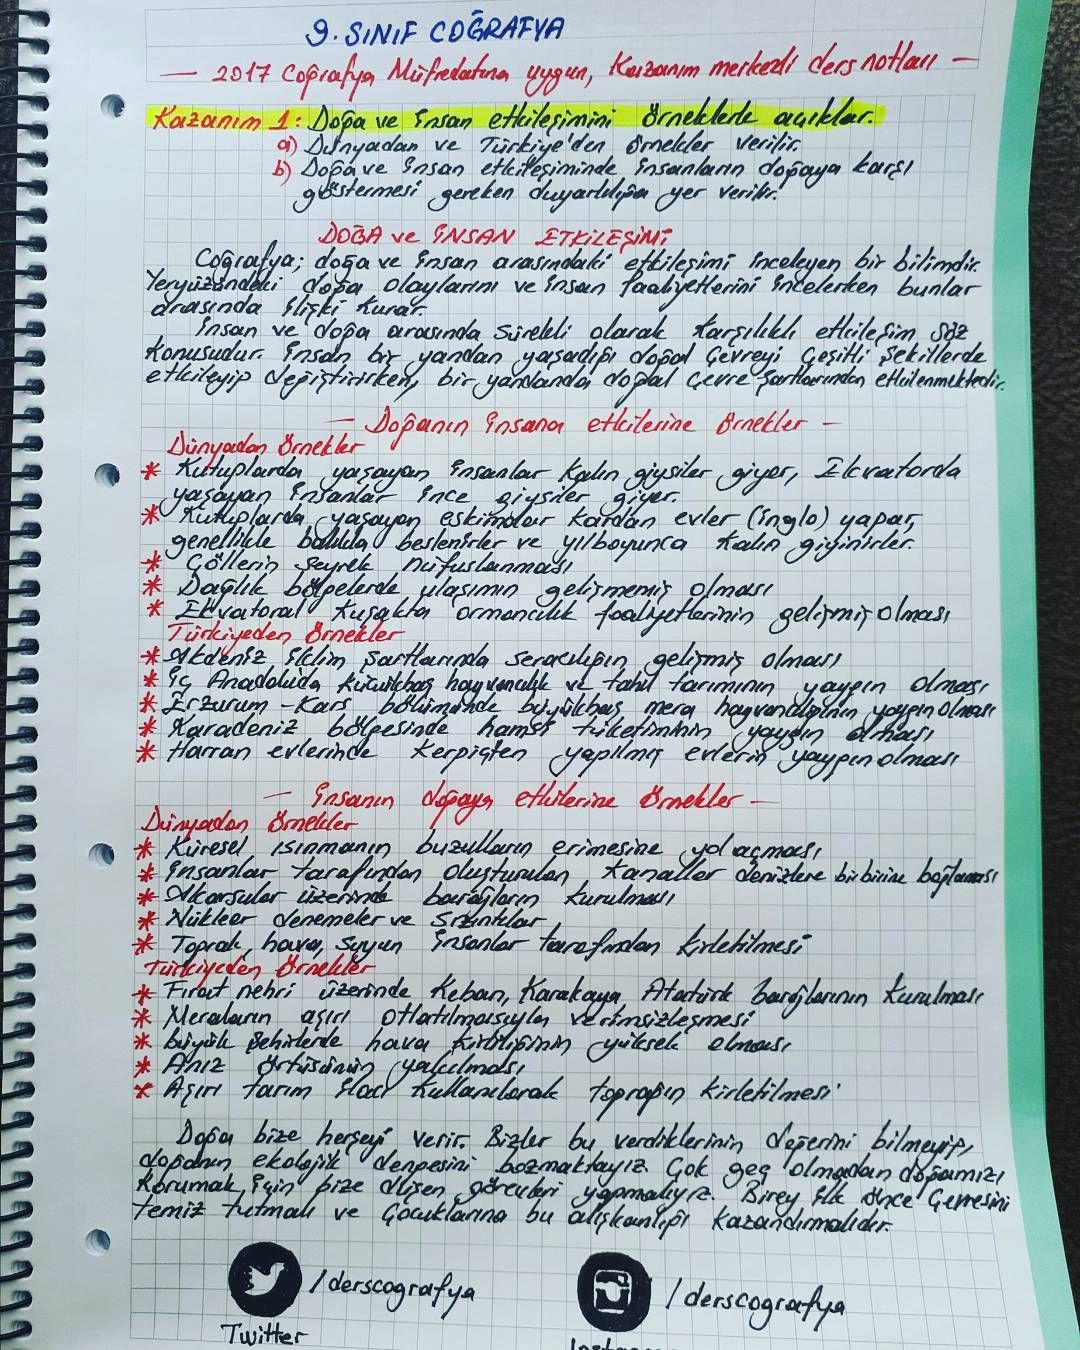 9. SINIF COĞRAFYA
— 2017 Coğrafya Müfredatına uygun, Kazanım merkezli ders notları —
Kazanım 1: Doğa ve insan etkileşimini örneklerle açıklar.
a) Dünyadan ve Türkiye'den örnekler verilir.
b) Doğa ve insan etkileşiminde insanların doğaya karşı
göstermesi gereken duyarlılığa yer verilir.
DOĞA ve İNSAN ETKİLEŞİMİ
Coğrafya; doğa ve insan arasındaki etkileşimi inceleyen bir bilimdir.
Yeryüzündeki doğa olaylarını ve insan faaliyetlerini incelerken bunlar
arasında ilişki kurar.
İnsan ve doğa arasında sürekli olarak karşılıklı etkileşim söz
konusudur. İnsan bir yandan yaşadığı doğal çevreyi çeşitli şekillerde
etkileyip değiştirirken, bir yandanda doğal çevre şartlarından etkilenmektedir.
— Doğanın insana etkilerine örnekler —
Dünyadan örnekler
* Kutuplarda yaşayan insanlar kalın giysiler giyer, Ekvatorda
yaşayan insanlar ince giysiler giyer.
* Kutuplarda yaşayan eskimolar kardan evler (inglo) yapar,
genellikle balıkla beslenirler ve yılboyunca kalın giyinirler.
* Çöllerin seyrek nüfuslanması
* Dağlık bölgelerde ulaşımın gelişmemiş olması
* Ekvatoral kuşakta ormancılık faaliyetlerinin gelişmiş olması
Türkiyeden örnekler
* Akdeniz iklim şartlarında seracılığın gelişmiş olması
* İç Anadoluda küçükbaş hayvancılık ve tahıl tarımının yaygın olması
* Erzurum - Kars bölümünde büyükbaş mera hayvancılığının yaygın olması
* Karadeniz bölgesinde hamsi tüketiminin yaygın olması
* Harran evlerinde kerpiçten yapılmış evlerin yaygın olması
— İnsanın doğaya etkilerine örnekler —
Dünyadan örnekler
* Küresel ısınmanın buzulların erimesine yol açması
* İnsanlar tarafından oluşturulan kanallar denizlere birbirine bağlaması
* Akarsular üzerinde barajların kurulması
* Nükleer denemeler ve sızıntılar
* Toprak, hava, suyun insanlar tarafından kirletilmesi
Türkiyeden örnekler
* Fırat nehri üzerinde Keban, Karakaya, Atatürk barajlarının kurulması
* Meraların aşırı otlatılmasıyla verimsizleşmesi
* büyük şehirlerde hava kirliliğinin yüksek olması
* Anız örtüsünün yakılması
* Aşırı tarım ilacı kullanılarak toprağın kirletilmesi
Doğa bize herşeyi verir. Bizler bu verdiklerinin değerini bilmeyip,
doğanın ekolojik dengesini bozmaktayız. Çok geç olmadan doğamızı
korumak için bize düşen görevleri yapmalıyız. Birey ilk önce çevresini
temiz tutmalı ve çocuklarına bu alışkanlığı kazandırmalıdır.
/derscografya
/derscografya
Twitter